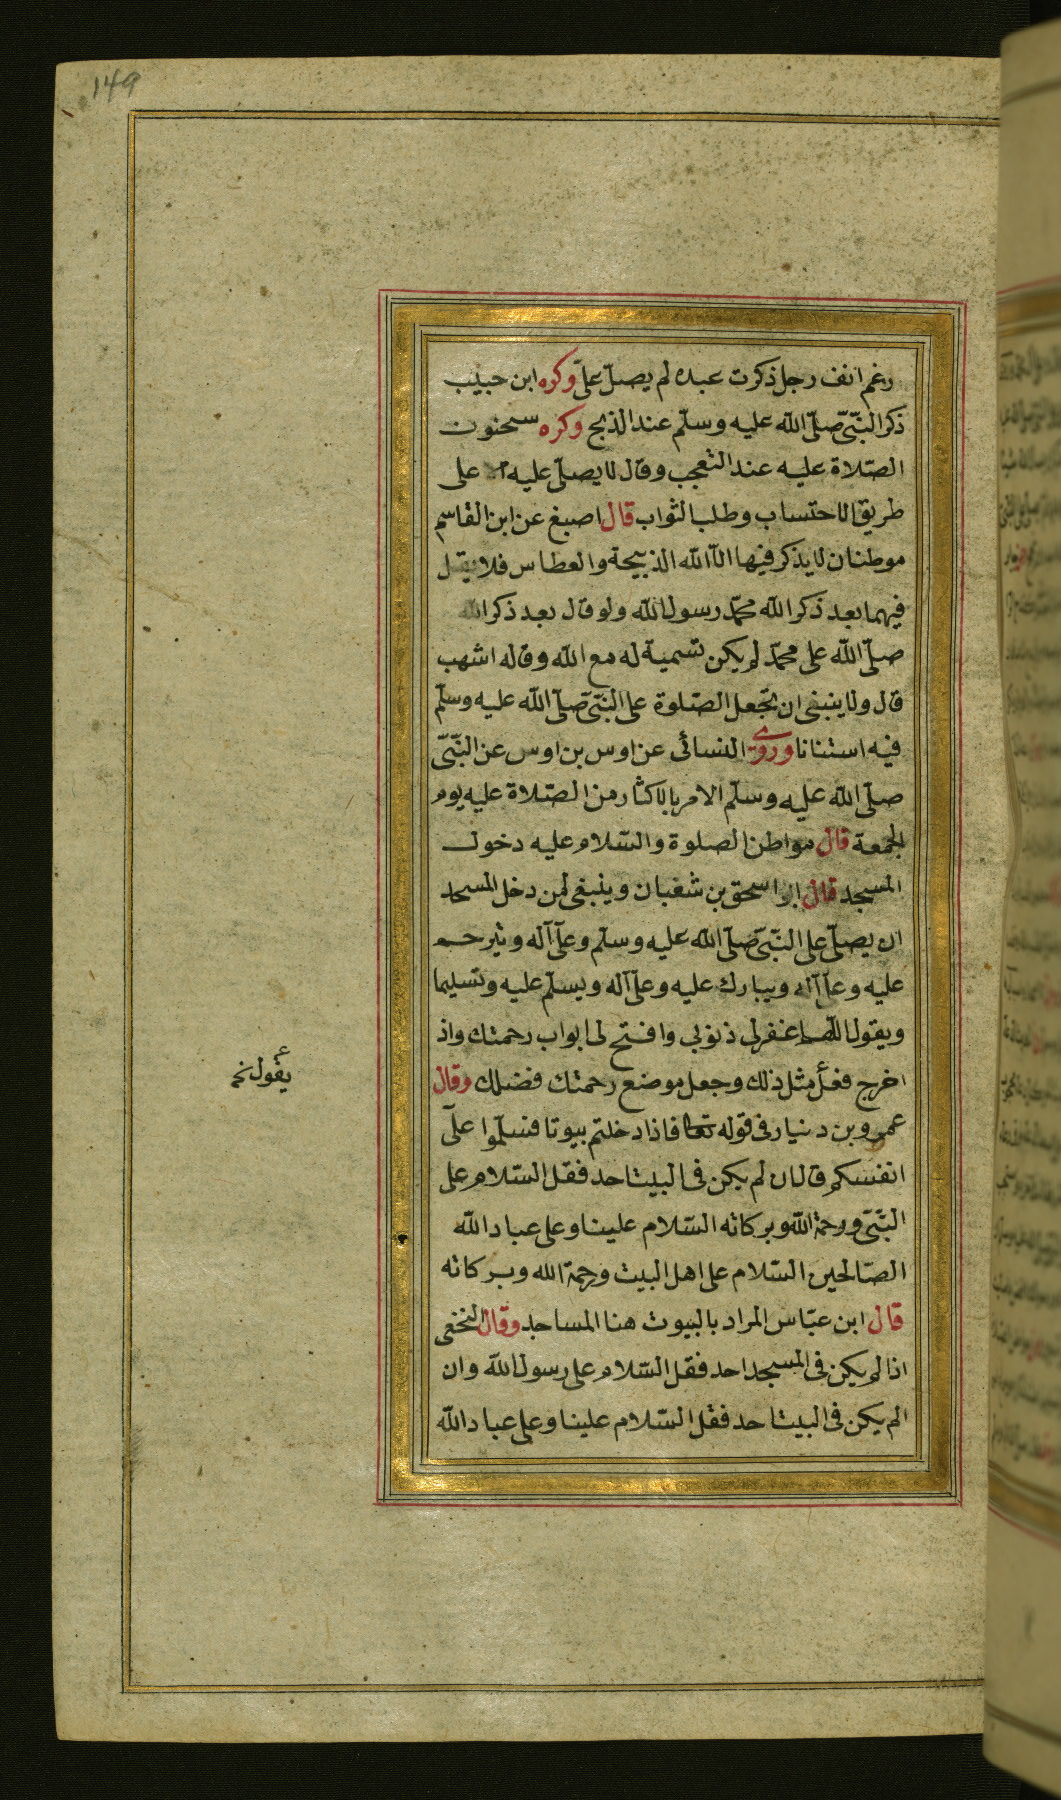 149
رغم انف رجل ذكرت عبده لم يصلّ علىّ وكره ابن حبيب
ذكر النّبّى صلّى الله عليه وسلّم عند الذبح وكره سحنون
الصّلاة عليه عند التعجب وقال لا يصلّى عليه الا على
طريق الاحتساب وطلب الثواب قال اصبغ عن ابن القاسم
موطنان لا يذكر فيها الّا الله الذبيحة والعطاس فلا يقل
فيهما بعد ذكر الله محمّد رسول الله ولو قال بعد ذكر الله
صلّى الله على محمّد لم يكن تسمية له مع الله وقاله اشهب
قال ولا ينبغى ان تجعل الصّلوة على النّبّى صلّى الله عليه وسلّم
فيه استنانا وروى النسائى عن اوس بن اوس عن النّبّى
صلّى الله عليه وسلّم الامر بالاكثار من الصّلاة عليه يوم
الجمعة قال مواطن الصلوة والسّلام عليه دخول
المسجد قال ابو اسحق بن شعبان وينبغى لمن دخل المسجد
ان يصلّى على النّبّى صلّى الله عليه وسلّم وعلى آله ويترحم
عليه وعلى آله ويبارك عليه وعلى آله ويسلّم عليه وتسليما
ويقول اللّهم اغفر لى ذنوبى وافتح لى ابواب رحمتك واذ
اخرج فعل مثل ذلك وجعل موضع رحمتك فضلك وقال
عمرو بن دينار فى قوله تعا فاذا دخلتم بيوتا فسلّموا على
انفسكم قال ان لم يكن فى البيت احد فقل السّلام على
النّبّى ورحمة الله وبركاته السّلام علينا وعلى عباد الله
الصّالحين السّلام على اهل البيت ورحمة الله وبركاته
قال ابن عبّاس المراد بالبيوت هنا المساجد وقال النخعى
اذا لم يكن فى المسجد احد فقل السّلام على رسول الله وان
لم يكن فى البيت احد فقل السّلام علينا وعلى عباد الله
يقول